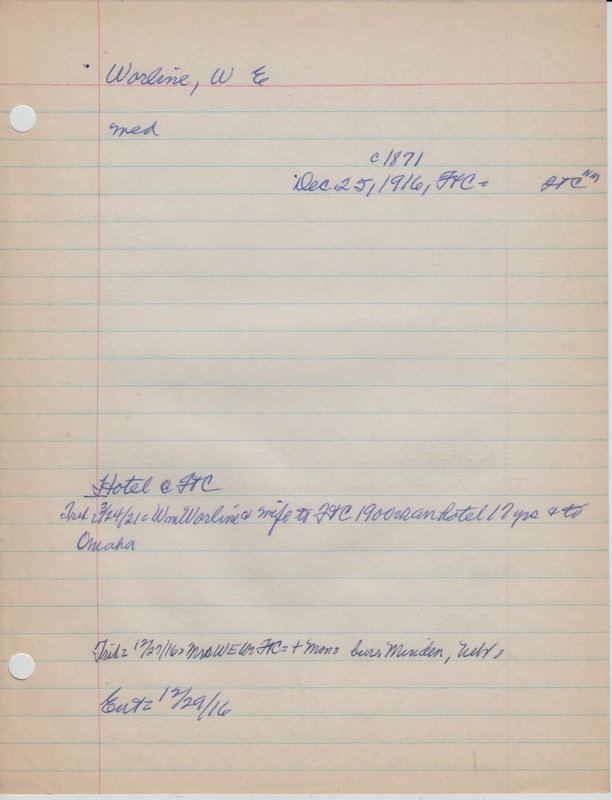 Worline, W E
med
c1871
Dec. 25, 1916, FtC = FtC
Hotel @ FtC
Trib = 3/24/21 = Wm Worline & wife to FtC 1900 & ran hotel 17 yrs & to
Omaha
Trib = 12/27/16 = Mrs W E W = FtC = + Mon = bur = Minden, Nebr =
Ent = 12/29/16